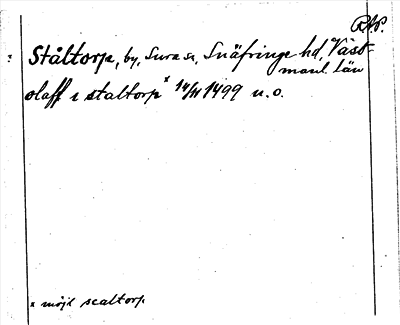 RAP.
Ståltorp, by, Sura sn, Snäfringe hd, Väst-
manl. län
olaff i staltorpˣ 14/11 1499 u. o.
x möjl scaltorp